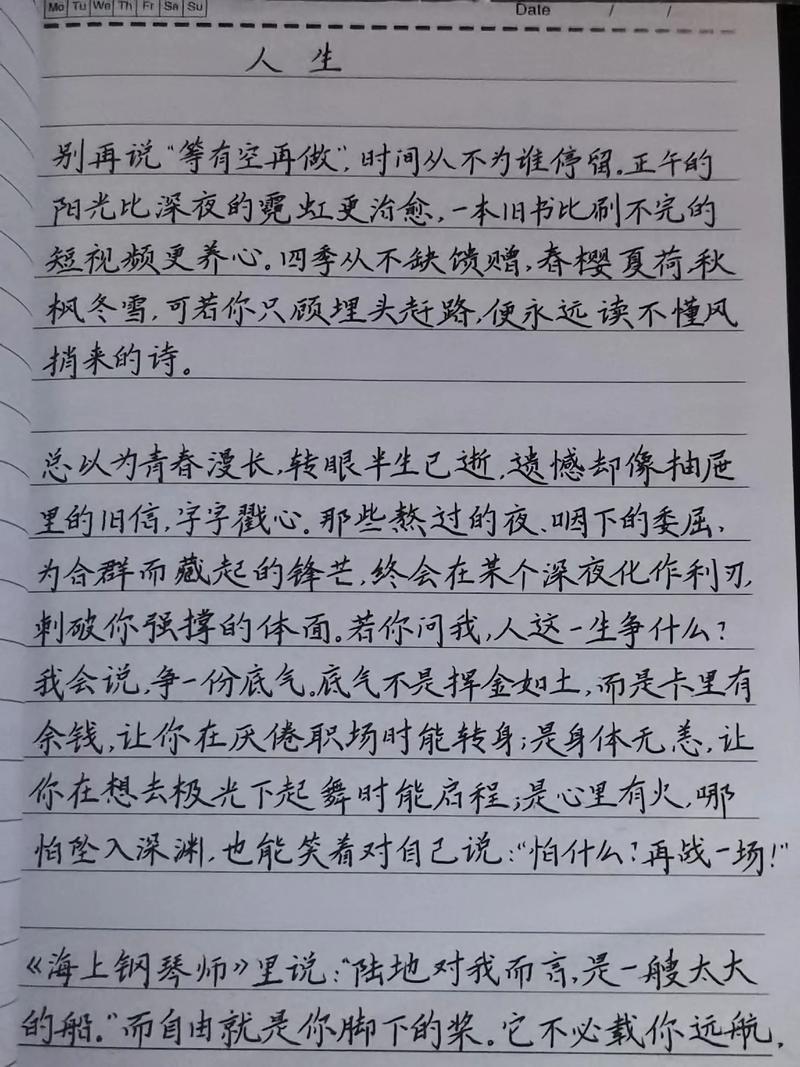 Mo Tu We Th Fr Sa Su
Date / /
人生
别再说“等有空再做”,时间从不为谁停留。正午的
阳光比深夜的霓虹更治愈,一本旧书比刷不完的
短视频更养心。四季从不缺馈赠,春樱夏荷秋
枫冬雪,可若你只顾埋头赶路,便永远读不懂风
捎来的诗。
总以为青春漫长,转眼半生已逝,遗憾却像抽屉
里的旧信,字字戳心。那些熬过的夜、咽下的委屈、
为合群而藏起的锋芒,终会在某个深夜化作利刃,
刺破你强撑的体面。若你问我,人这一生争什么?
我会说,争一份底气。底气不是挥金如土,而是卡里有
余钱,让你在厌倦职场时能转身;是身体无恙,让
你在想去极光下起舞时能启程;是心里有火,哪
怕坠入深渊,也能笑着对自己说:“怕什么?再战一场!”
《海上钢琴师》里说:“陆地对我而言,是一艘太大
的船。”而自由就是你脚下的桨。它不必载你远航,